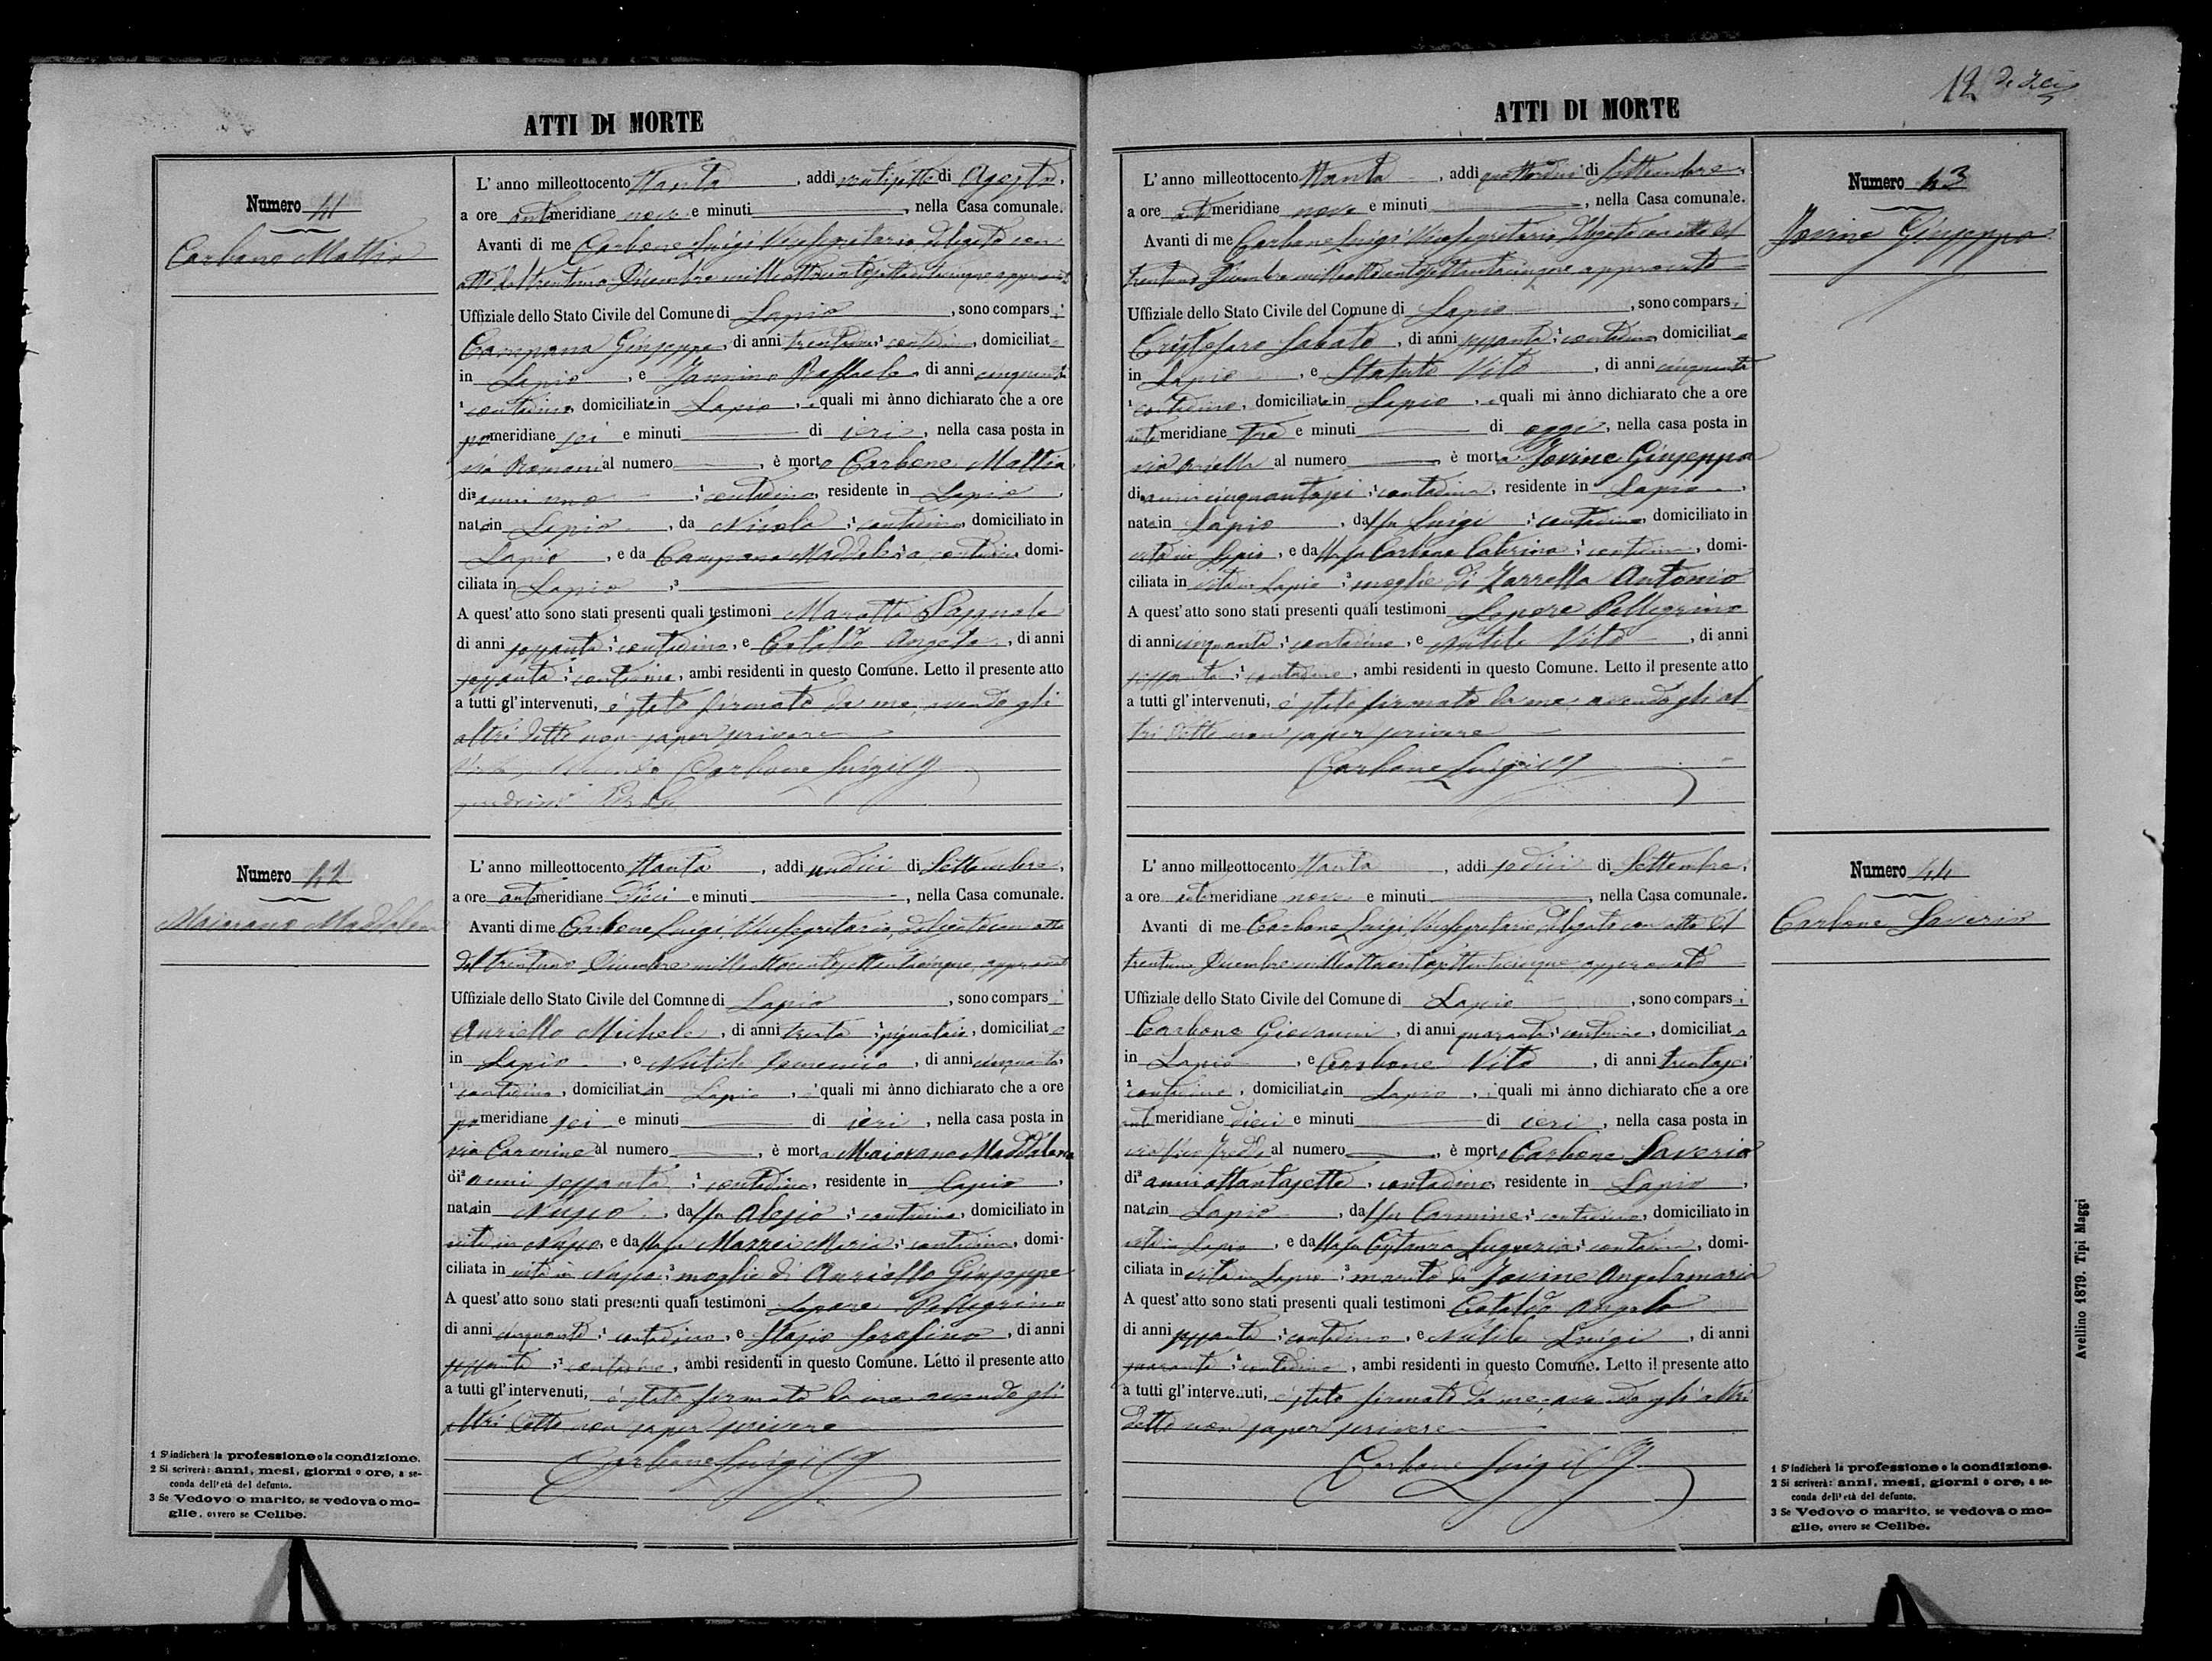 ATTI DI MORTE
Numero 41
Carbone Mattia
L' anno milleottocento ttanta, addi ventisette di Agosto,
a ore antimeridiane nove e minuti, nella Casa comunale.
Avanti di me Carbone Luigi Vicesegretario delegato con
atto del trentuno Dicembre milleottocentosettantacinque approvato
Uffiziale dello Stato Civile del Comune di Lapio, sono comparsi
Campana Giuseppe, di anni, contadino, domiciliato
in Lapio, e Jannino Raffaele, di anni cinquanta
contadino, domiciliato in Lapio, quali mi ànno dichiarato che a ore
pomeridiane sei e minuti di ieri, nella casa posta in
via Romani al numero, è morto Carbone Mattia
di anni uno, contadino, residente in Lapio,
nato in Lapio, da Nicola, contadino, domiciliato in
Lapio, e da Campana Maddalena, contadina, domi-
ciliata in Lapio,
A quest' atto sono stati presenti quali testimoni
di anni sessanta, contadino, e Cataldo Angelo, di anni
sessanta, contadino, ambi residenti in questo Comune. Letto il presente atto
a tutti gl' intervenuti, è stato firmato da me, avendo gli
altri detto non saper scrivere
Carbone Luigi
Numero 42
Maiorano Maddalena
L' anno milleottocento ttanta, addi undici di Settembre,
a ore antimeridiane dieci e minuti, nella Casa comunale.
Avanti di me Carbone Luigi, Vicesegretario, delegato con atto
del trentuno Dicembre milleottocentosettantacinque, approvato
Uffiziale dello Stato Civile del Comnne di Lapio, sono comparsi
Auriello Michele, di anni trenta, pignataio, domiciliato
in Lapio, e Nutile Domenico, di anni cinquanta,
contadino, domiciliato in Lapio, quali mi ànno dichiarato che a ore
pomeridiane sei e minuti di ieri, nella casa posta in
via Carmine al numero, è morta Maiorano Maddalena
di anni sessanta, contadina, residente in Lapio,
nata in Nusco, dal fu Alesio, contadino, domiciliato in
vita in Nusco, e dalla fu Mazzei Maria, contadina, domi-
ciliata in vita in Nusco, moglie di Auriello Giuseppe
A quest' atto sono stati presenti quali testimoni Lepore Pellegrino
di anni cinquanta, contadino, e Stasio Serafino, di anni
sessanta, contadino, ambi residenti in questo Comune. Letto il presente atto
a tutti gl' intervenuti, è stato firmato da me avendo gli
altri detto non saper scrivere
Carbone Luigi
1 S'indicherà la professione o la condizione.
2 Si scriverà: anni, mesi, giorni o ore, a se-
conda dell'età del defunto.
3 Se Vedovo o marito, se vedova o mo-
glie, ovvero se Celibe.
12
ATTI DI MORTE
Numero 43
Jovine Giuseppa
L' anno milleottocento ttanta, addi quattordici di Settembre,
a ore antimeridiane nove e minuti, nella Casa comunale.
Avanti di me Carbone Luigi Vicesegretario delegato con atto del
trentuno Dicembre milleottocentosettantacinque approvato
Uffiziale dello Stato Civile del Comune di Lapio, sono comparsi
Cristofaro Sabato, di anni sessanta, contadino, domiciliato
in Lapio, e Statuto Vito, di anni cinquanta
contadino, domiciliato in Lapio, quali mi ànno dichiarato che a ore
antimeridiane tre e minuti di oggi, nella casa posta in
via al numero, è morta Jovine Giuseppa
di anni cinquantasei, contadina, residente in Lapio,
nata in Lapio, dal fu Luigi, contadino, domiciliato in
vita in Lapio, e dalla fu Carbone Caterina, contadina, domi-
ciliata in vita in Lapio, moglie di Zarrella Antonio
A quest' atto sono stati presenti quali testimoni Lepore Pellegrino
di anni cinquanta, contadino, e Nutile Vito, di anni
sessanta, contadino, ambi residenti in questo Comune. Letto il presente atto
a tutti gl' intervenuti, è stato firmato da me avendo gli al-
tri detto non saper scrivere
Carbone Luigi
Numero 44
Carbone Saverio
L' anno milleottocento ttanta, addi sedici di Settembre,
a ore antimeridiane nove e minuti, nella Casa comunale.
Avanti di me Carbone Luigi, Vicesegretario, delegato con atto del
trentuno Dicembre milleottocentosettantacinque, approvato
Uffiziale dello Stato Civile del Comune di Lapio, sono comparsi
Carbone Giovanni, di anni quaranta, contadino, domiciliato
in Lapio, e Carbone Vito, di anni trentasei
contadino, domiciliato in Lapio, quali mi ànno dichiarato che a ore
antimeridiane dieci e minuti di ieri, nella casa posta in
via al numero, è morto Carbone Saverio
di anni ottantasette, contadino, residente in Lapio,
nato in Lapio, dal fu Carmine, contadino, domiciliato in
vita in Lapio, e dalla fu, contadina, domi-
ciliata in vita in Lapio, marito di Jovine Angelamaria
A quest' atto sono stati presenti quali testimoni Cataldo Angelo
di anni sessanta, contadino, e Nutile Luigi, di anni
quaranta, contadino, ambi residenti in questo Comune. Letto il presente atto
a tutti gl' intervenuti, è stato firmato da me, avendo gli altri
detto non saper scrivere
Carbone Luigi
1 S'indicherà la professione o la condizione.
2 Si scriverà: anni, mesi, giorni o ore, a se-
conda dell'età del defunto.
3 Se Vedovo o marito, se vedova o mo-
glie, ovvero se Celibe.
Avellino 1879. Tipi Maggi